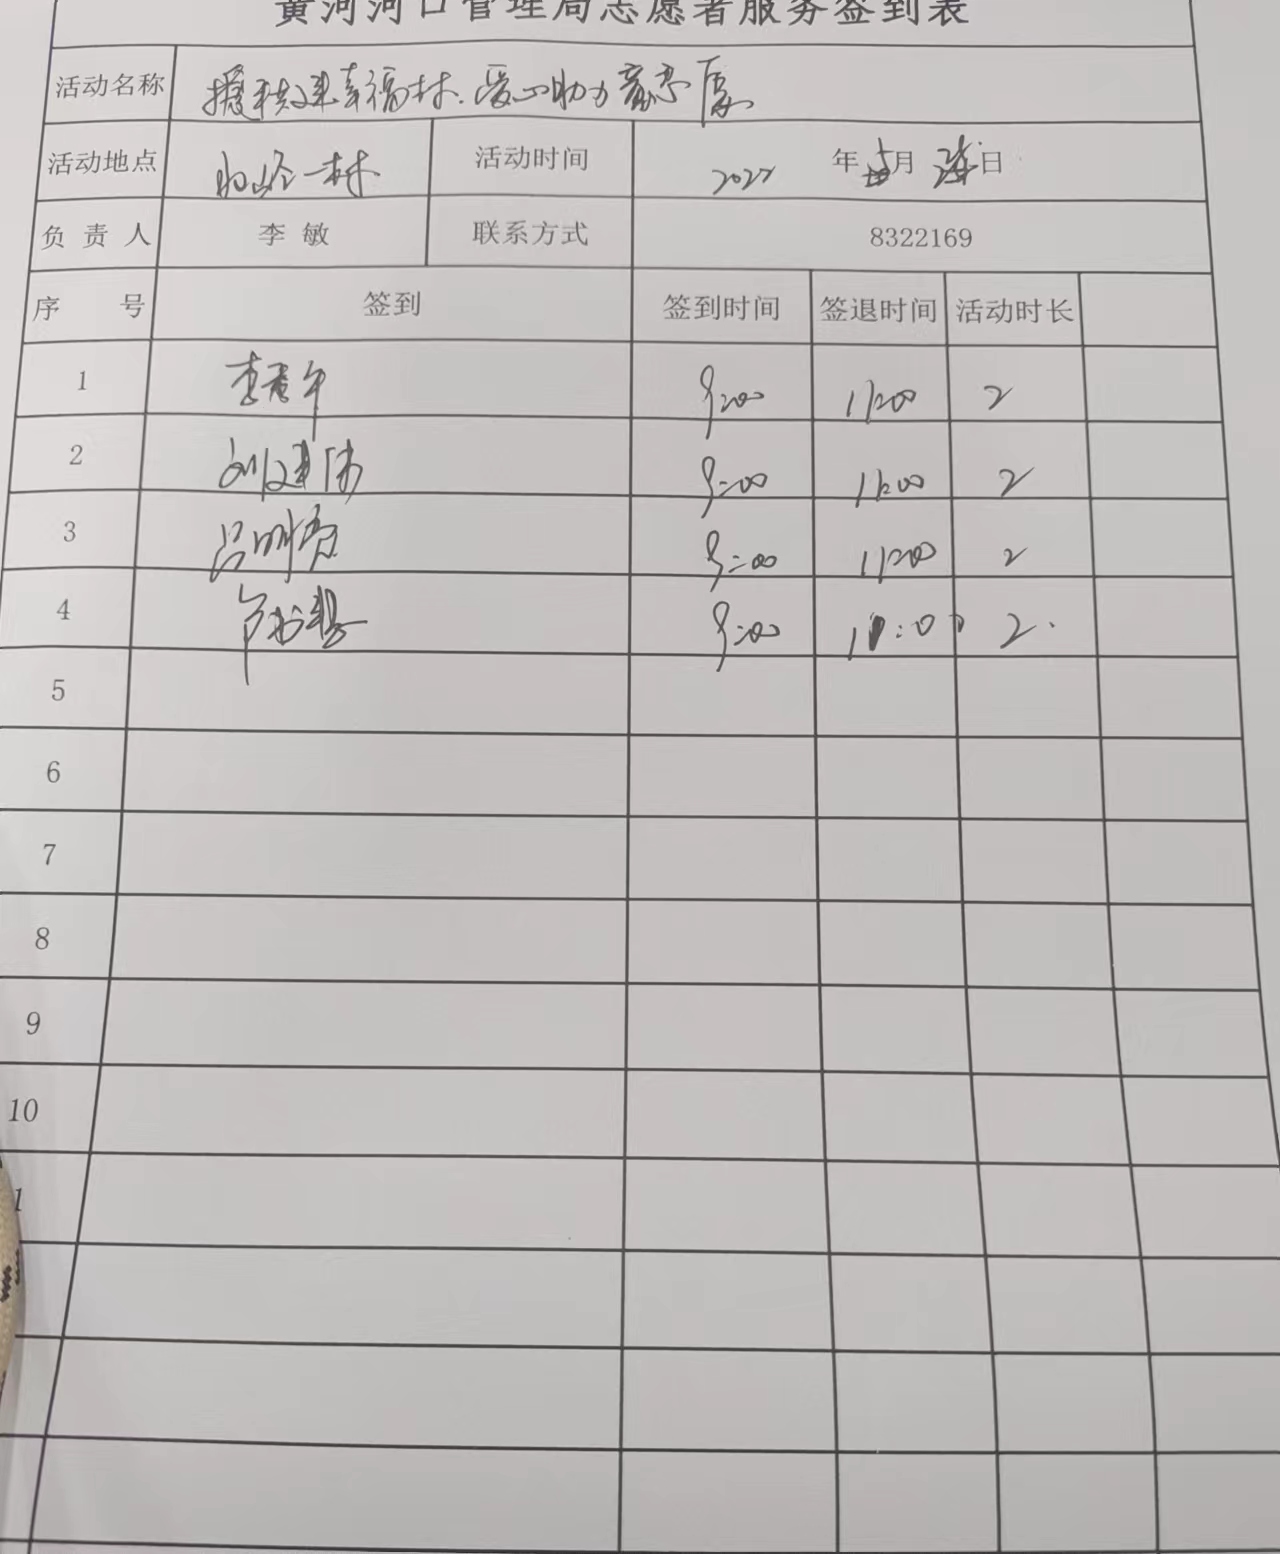 黄河河口管理局志愿者服务签到表
活动名称 援扶建幸福村.爱心助力
活动地点 一村 活动时间 2022 年 月 日
负责人 李敏 联系方式 8322169
序号 签到 签到时间 签退时间 活动时长
1 9:00 11:00 2
2 刘建伟 9:00 11:00 2
3 吕明 9:00 11:00 2
4 9:00 11:00 2.
5
6
7
8
9
10
1